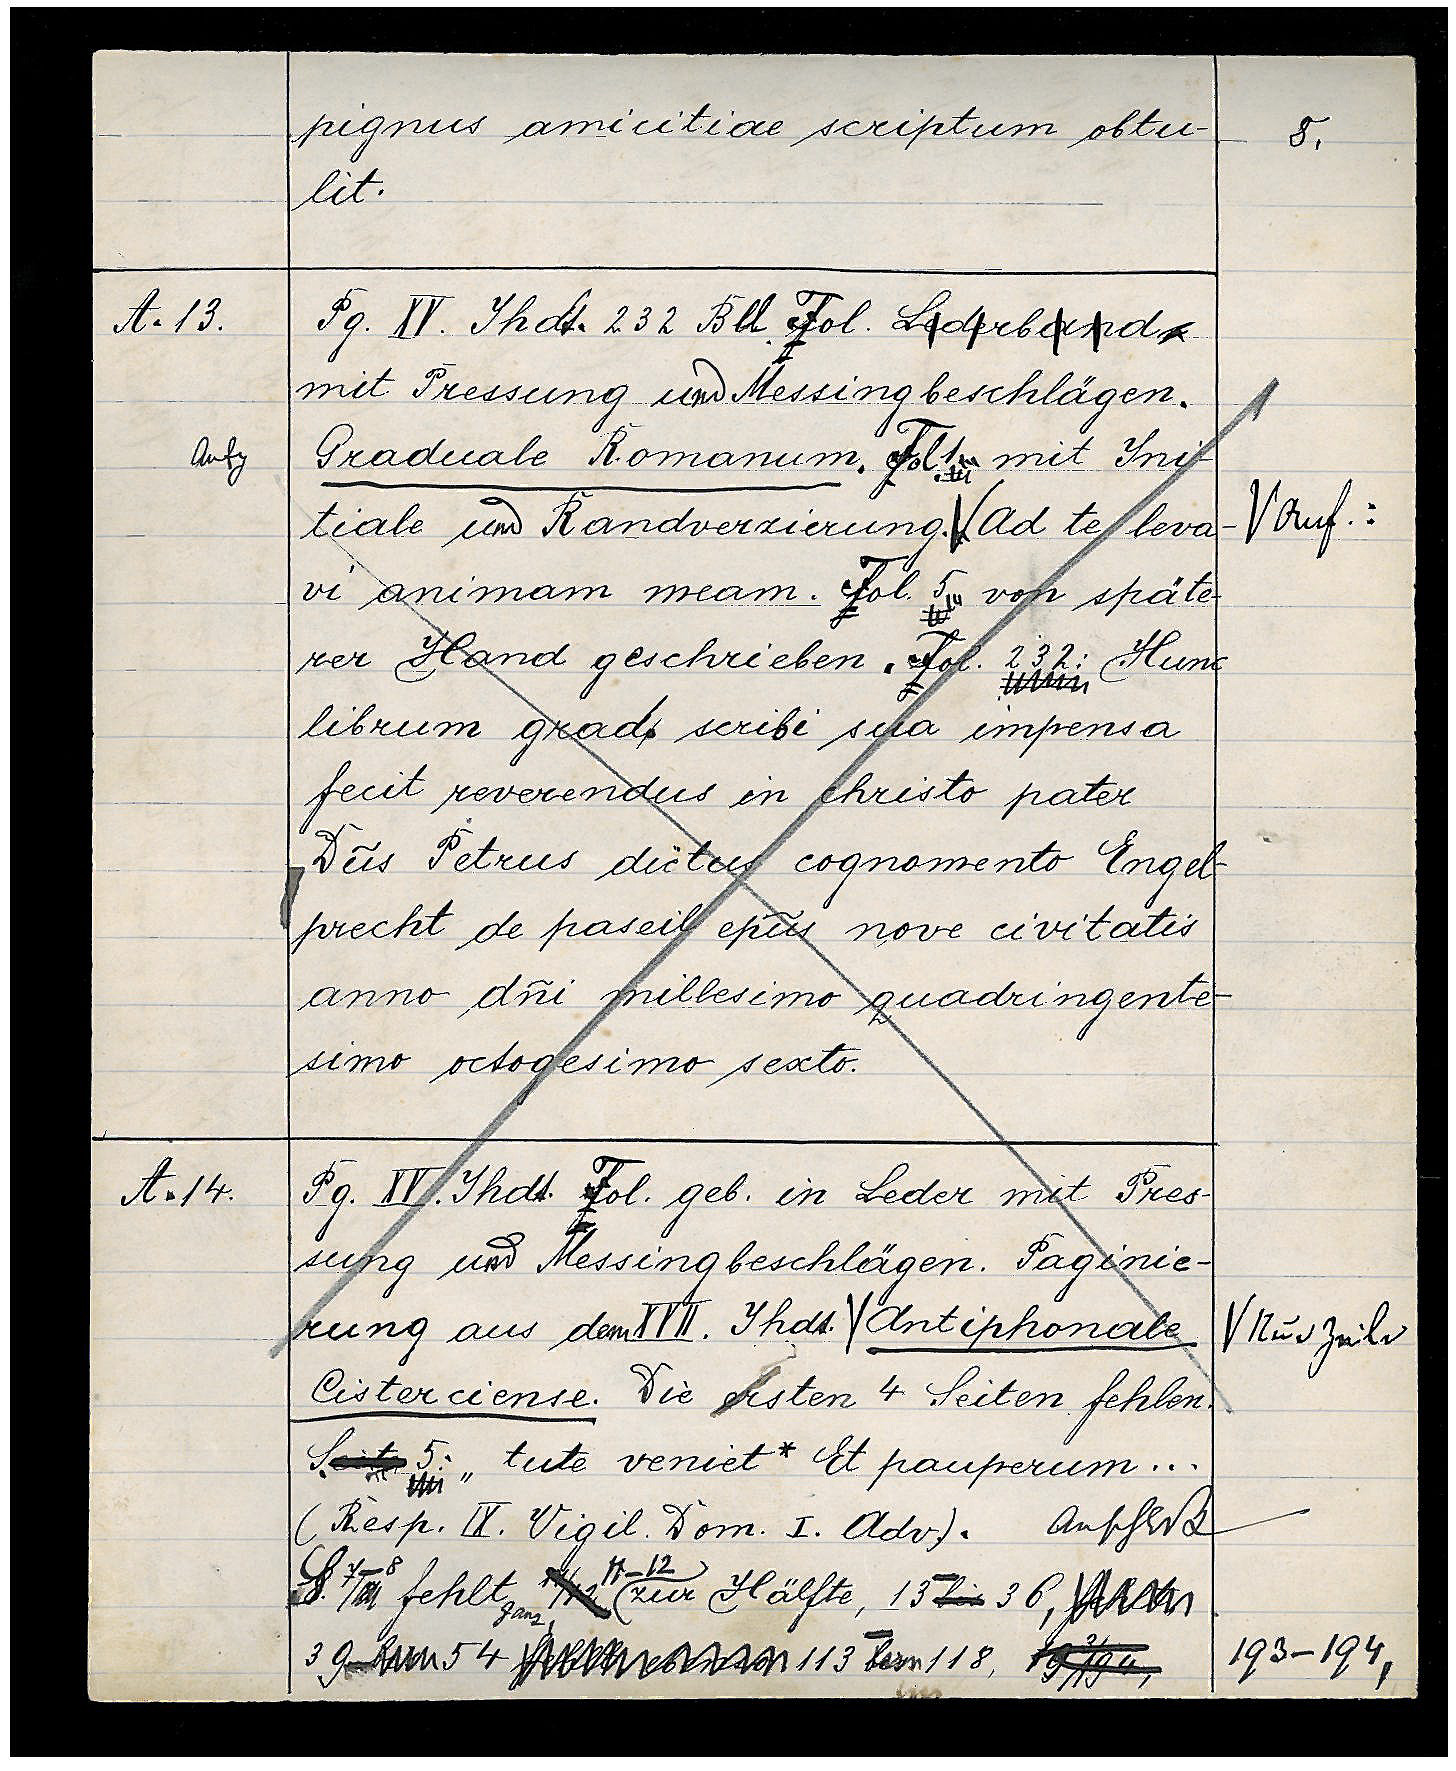 pignus amicitiae scriptum obtu- 8.
lit.
A. 13. Pg. XV. Jhdt. 232 Bll. Fol. Lederband
mit Pressung und Messingbeschlägen.
Graduale Romanum. Fol. 1 mit Ini-
tiale und Randverzierung. √ Ad te leva- √ Anf.:
vi animam meam. Fol. 5 von späte-
rer Hand geschrieben. Fol. 232: Hunc
librum grad. scribi sua impensa
fecit reverendus in christo pater
Dñs Petrus dictus cognomento Engel-
precht de paseil epũs nove civitatis
anno dñi millesimo quadringente-
simo octogesimo sexto.
A. 14. Pg. XV. Jhdt. Fol. geb. in Leder mit Pres-
sung und Messingbeschlägen. Paginie-
rung aus dem XVII. Jhdt. √ Antiphonale
Cisterciense. Die ersten 4 Seiten fehlen.
Seite 5: „tute veniet* Et pauperum...
(Resp. IX. Vigil. Dom. I. Adv.).
S. 7–8 fehlt ganz, 11–12 zur Hälfte, 13 bis 36,
39 54 113 118, 193–194,